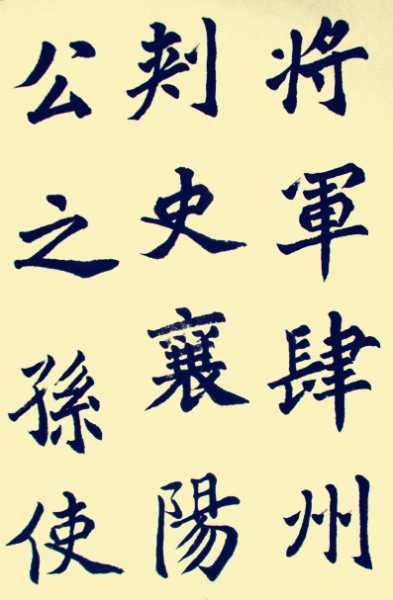 將軍肆州
刾史襄陽
公之孫使